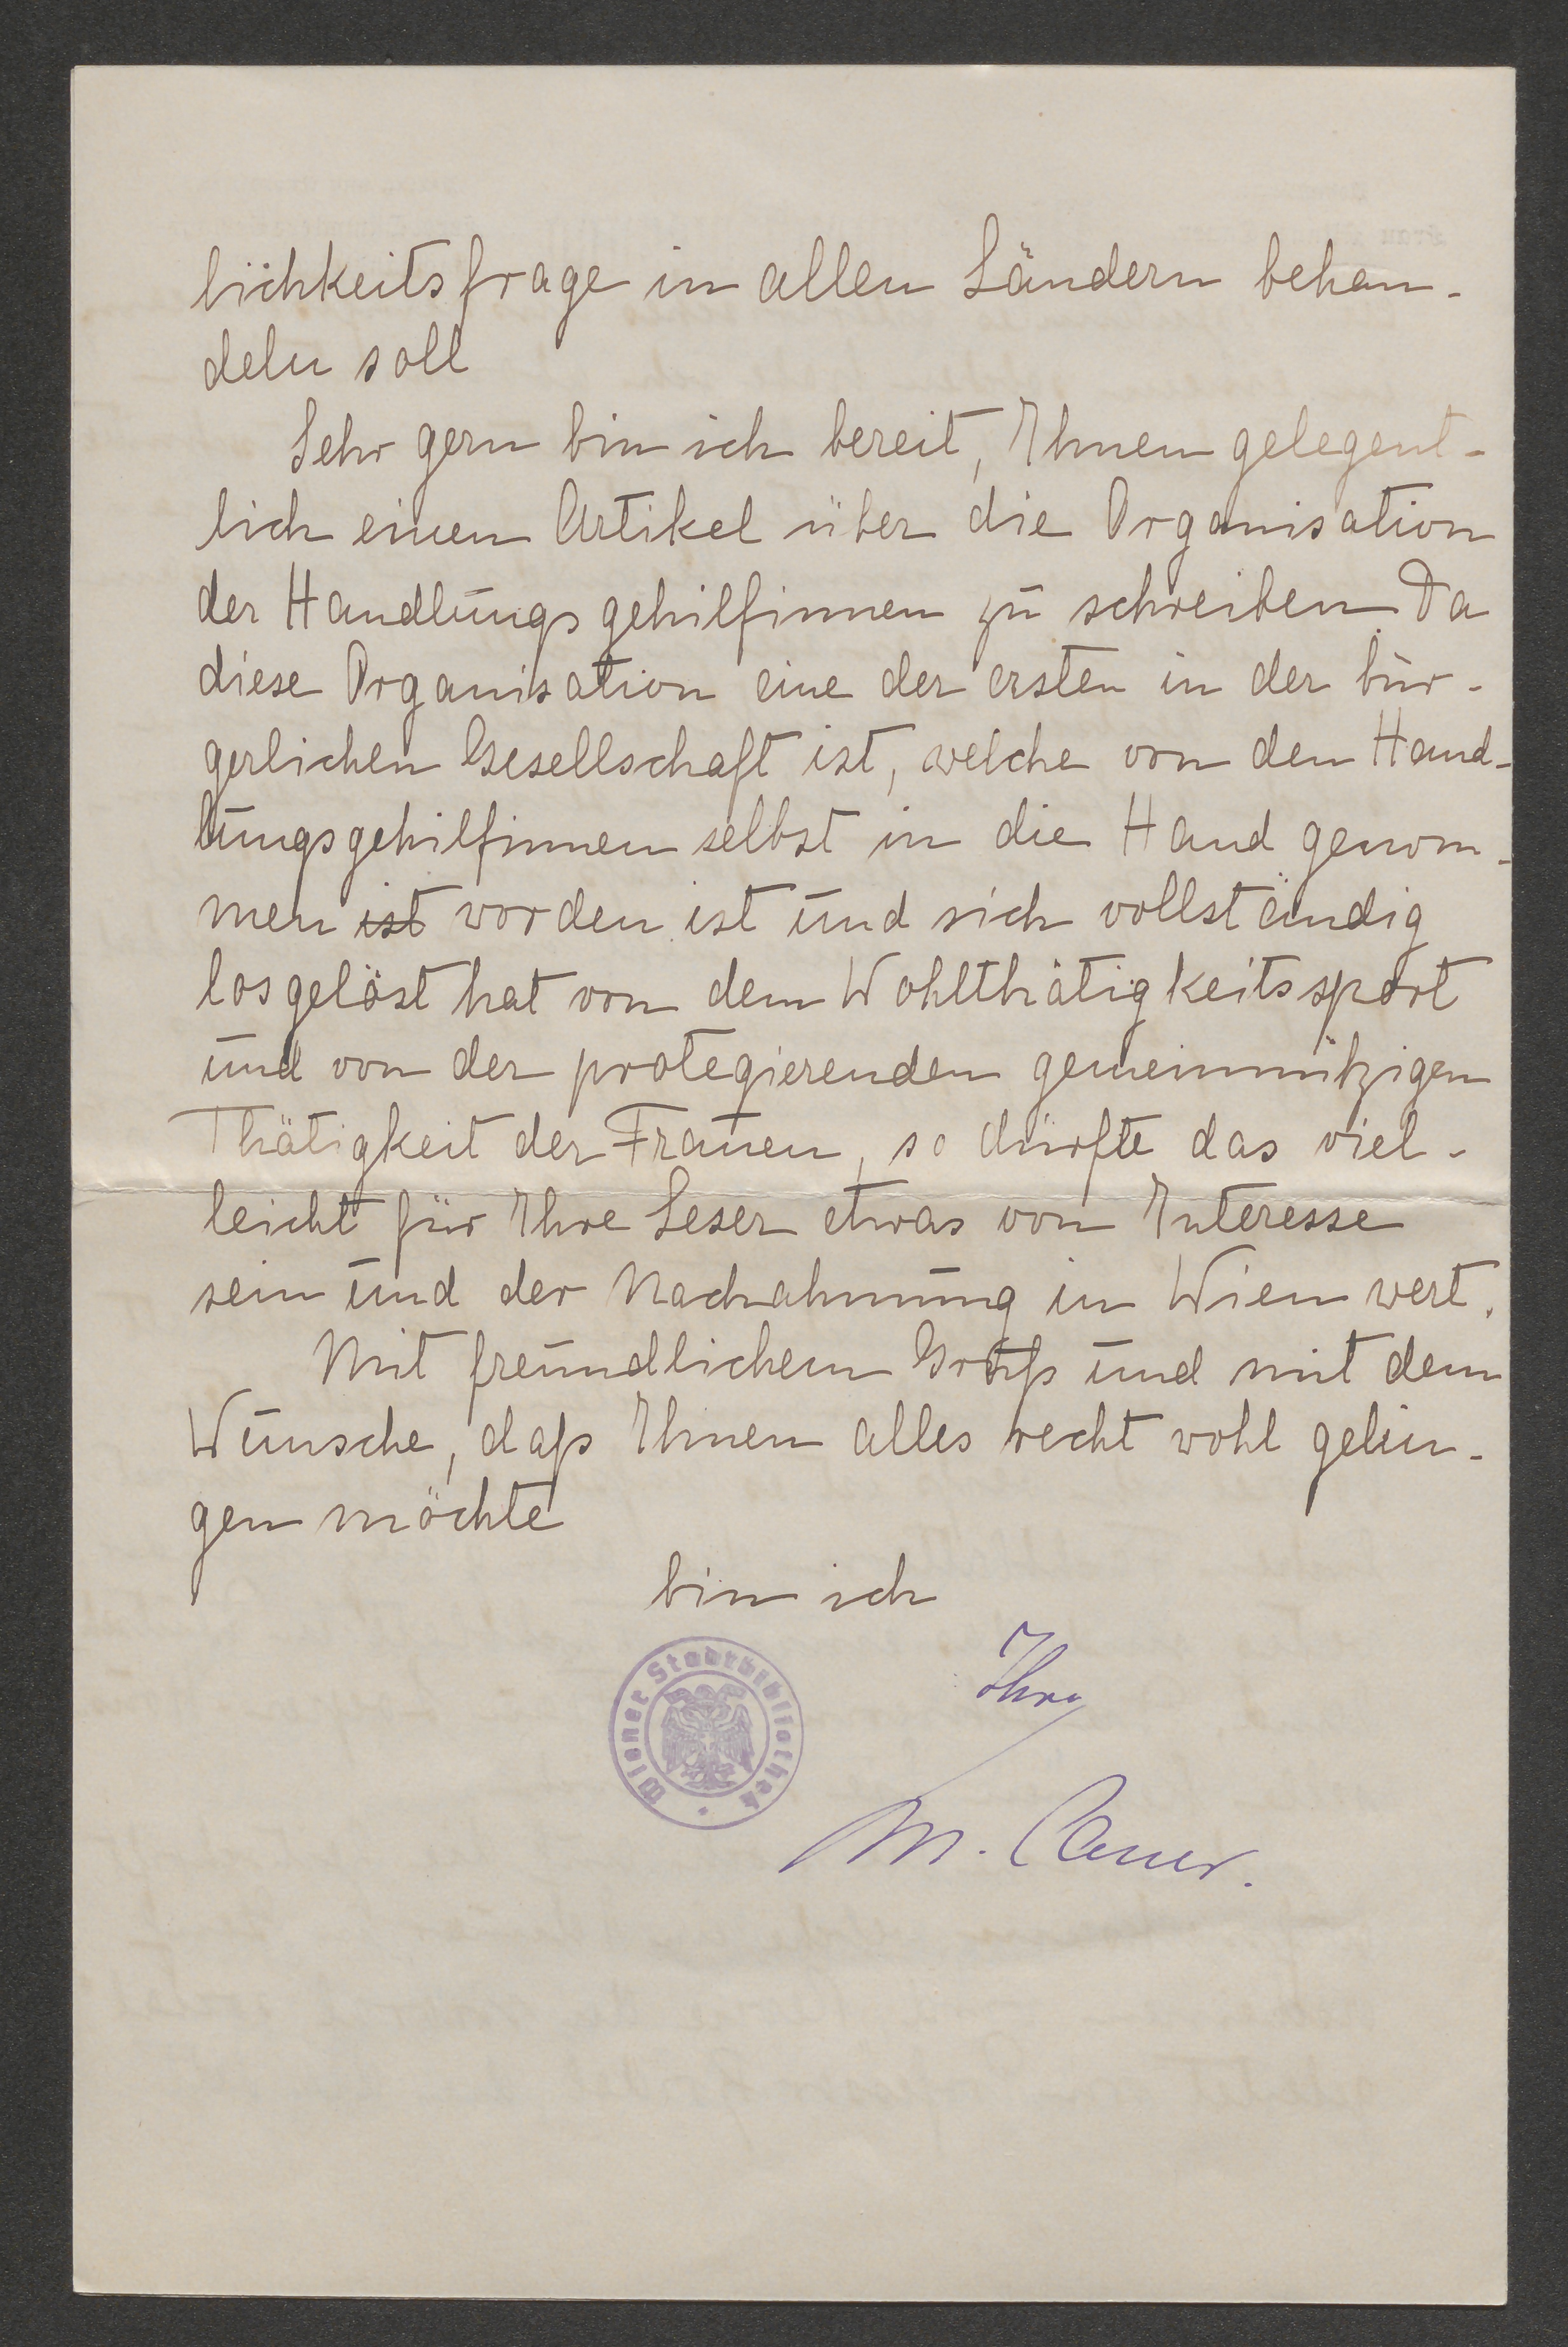 lichkeitsfrage in allen Ländern behan-
deln soll
Sehr gern bin ich bereit, Ihnen gelegent-
lich einen Artikel über die Organisation
der Handlungsgehilfinnen zu schreiben. Da
diese Organisation eine der ersten in der bür-
gerlichen Gesellschaft ist, welche von den Hand-
lungsgehilfinnen selbst in die Hand genom-
men ist worden ist und sich vollständig
losgelöst hat von dem Wohlthätigkeitssport
und von der protegierenden gemeinnützigen
Thätigkeit der Frauen, so dürfte das viel-
leicht für Ihre Leser etwas von Interesse
sein und der Nachahmung in Wien wert.
Mit freundlichem Gruß und mit dem
Wunsche, daß Ihnen alles recht wohl gelin-
gen möchte
bin ich
Ihre
M. Cauer.
Wiener Stadtbibliothek